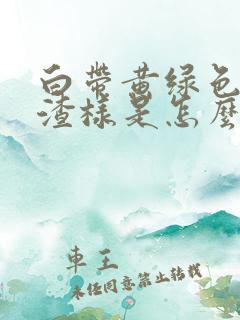 白带黄绿色
渣样是怎麽
车王
未经同意禁止转载